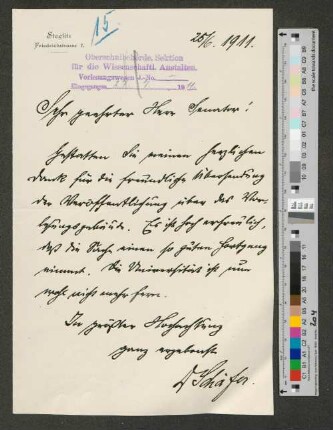 Steglitz
Friedrichstrasse 7.
15
25/6. 1911.
Oberschulbehörde, Sektion
für die Wissenschaftl. Anstalten.
Vorlesungswesen J.-No.
Eingegangen 1911.
Sehr geehrter Herr Senator!
Gestatten Sie meinen herzlichen
Dank für die freundliche Übersendung
der Veröffentlichung über das Vor-
lesungsgebäude. Es ist hoch erfreulich,
daß die Sache einen so guten Fortgang
nimmt. Die Universität ist nun
wohl nicht mehr fern.
In größter Hochachtung
ganz ergebenst
D Schäfer.